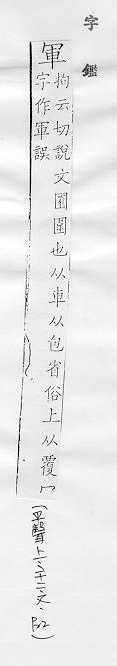 字鑑
軍
拘云切說文圜圍也从車从包省俗上从覆冖
字作軍誤
(平聲上 文.P32)